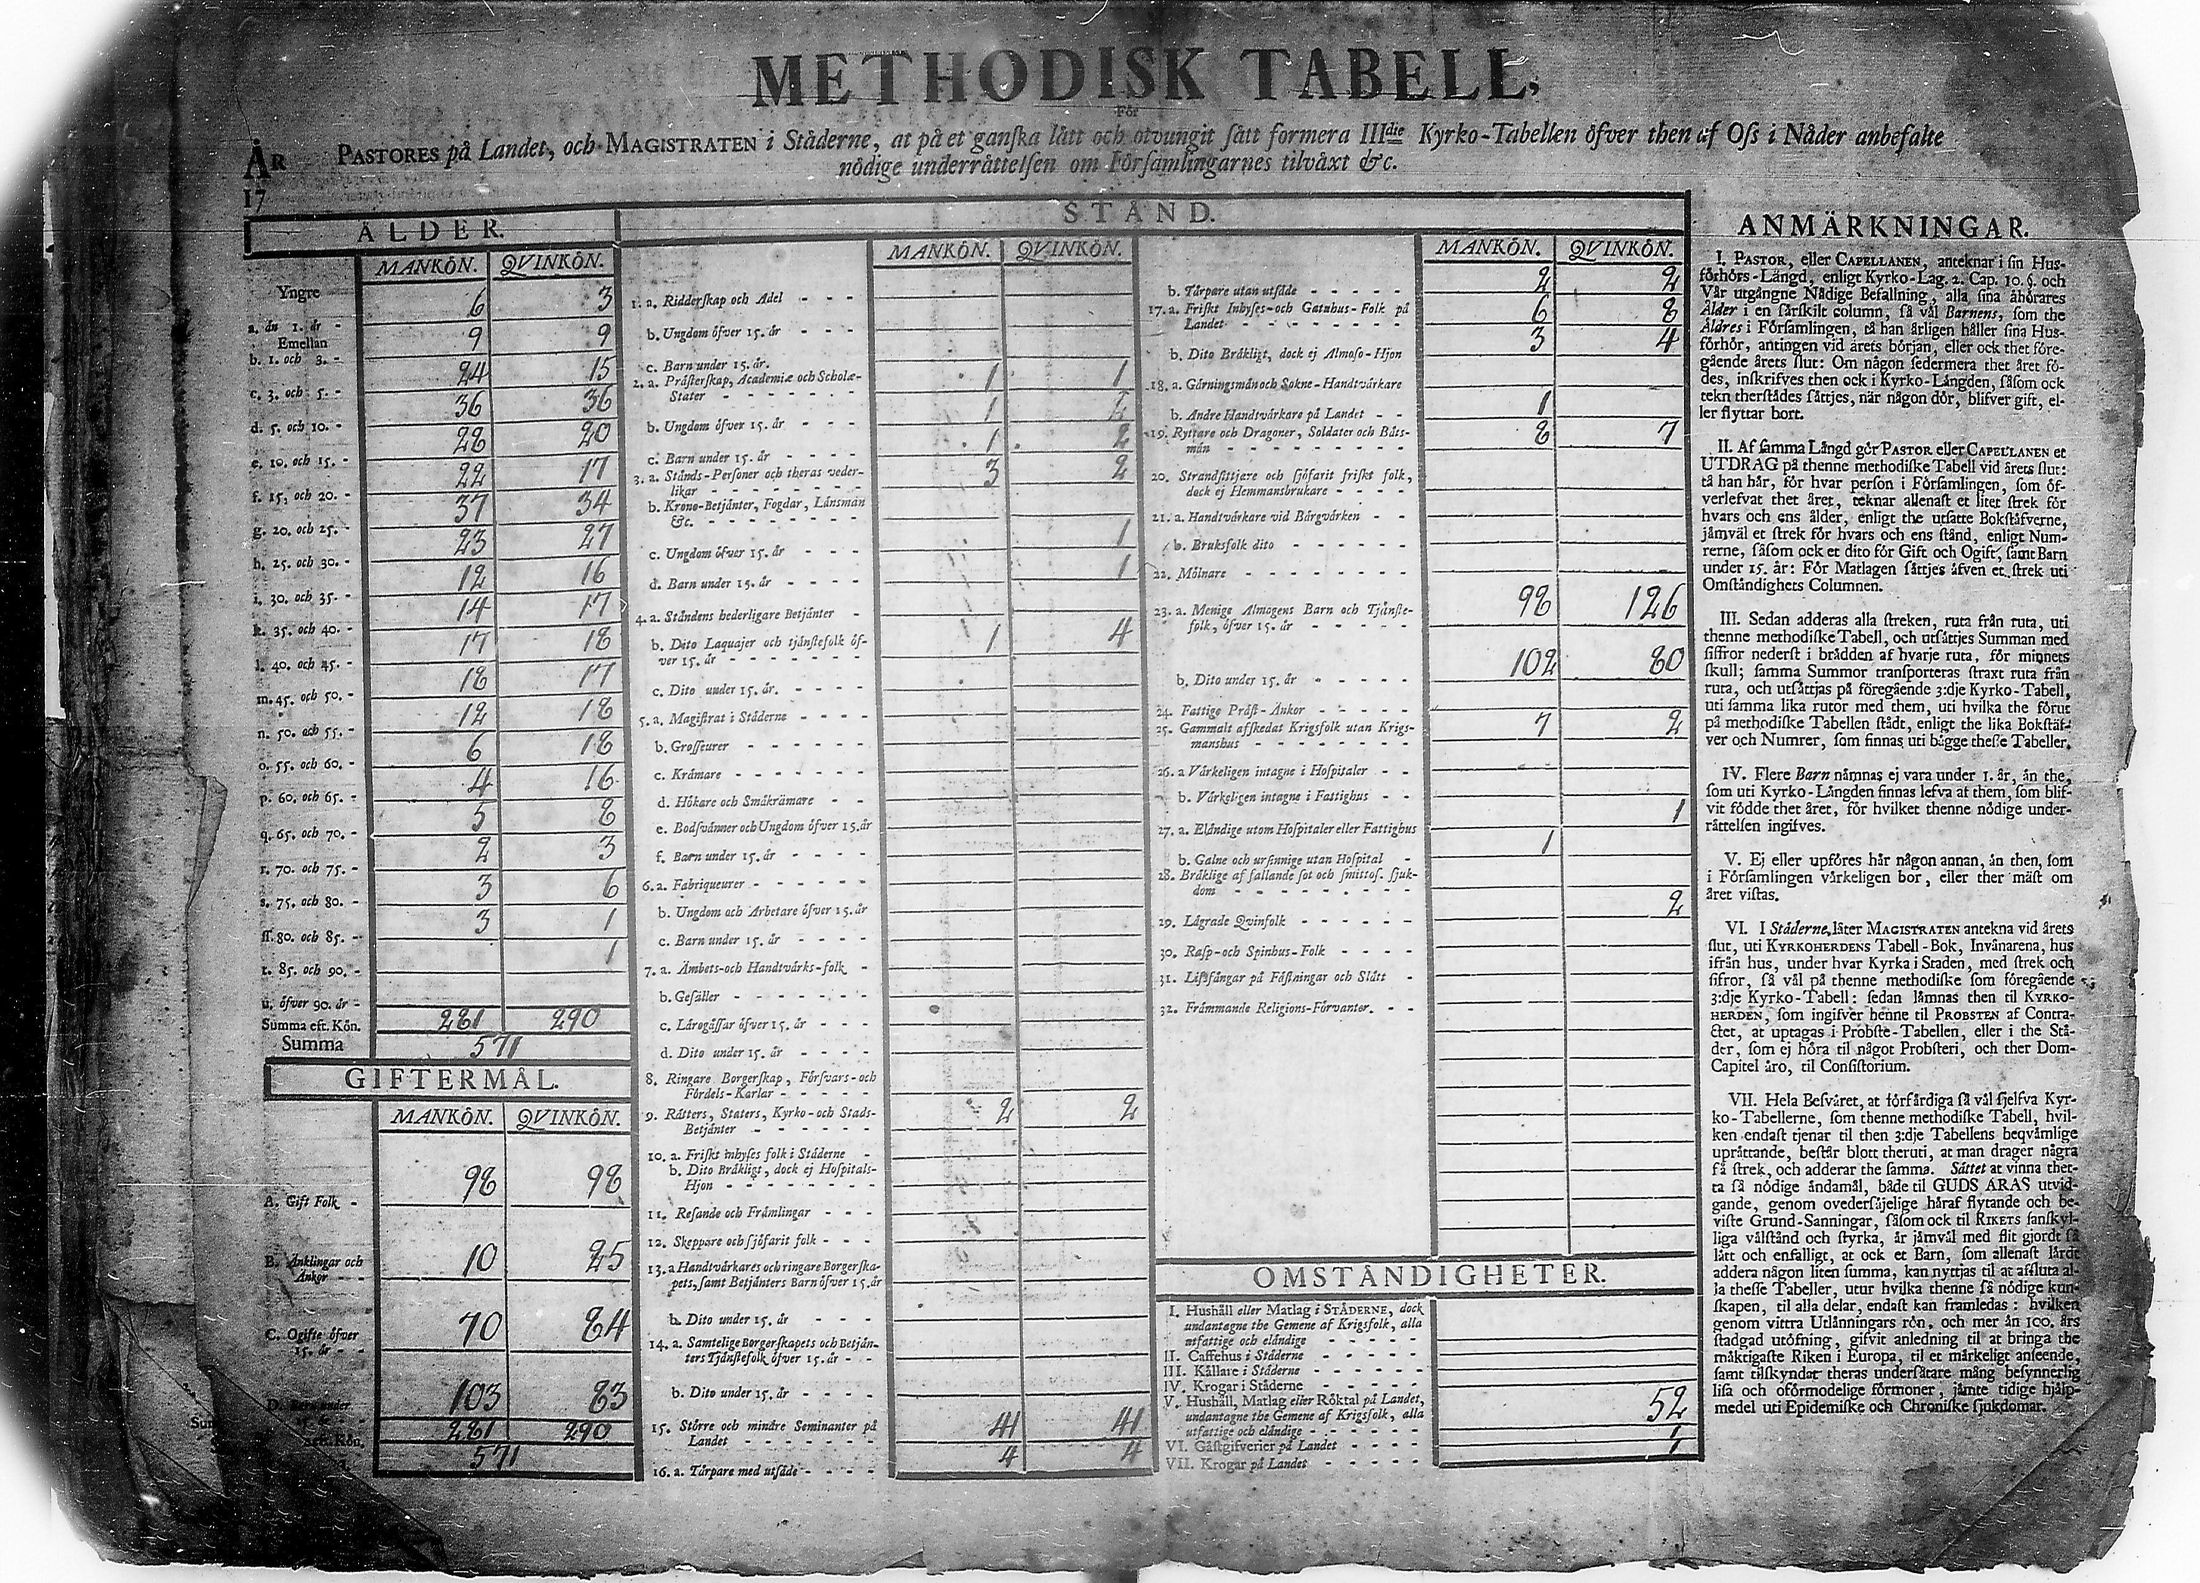 METHODISK TABELL,
För
ÅR PASTORES på Landet, och MAGISTRATEN i Städerne, at på et ganska lätt och otvungit sätt formera III<u>die</u> Kyrko-Tabellen öfver then af Oss i Nåder anbefalte
17 nödige underrättelsen om Församlingarnes tilväxt &c.
ÅLDER.
MANKÖN. QVINKÖN.
Yngre
a. än 1. år - 6 3
Emellan
b. 1. och 3. - 9 9
c. 3. och 5. - 24 15
d. 5. och 10. - 36 36
e. 10. och 15. - 28 20
f. 15. och 20. - 22 17
g. 20. och 25. - 37 34
h. 25. och 30. - 23 27
i. 30. och 35. - 12 16
k. 35. och 40. - 14 17
l. 40. och 45. - 17 18
m. 45. och 50. - 18 17
n. 50. och 55. - 12 18
o. 55. och 60. - 6 18
p. 60. och 65. - 4 16
q. 65. och 70. - 5 8
r. 70. och 75. - 2 3
s. 75. och 80. - 3 6
ff. 80. och 85. - 3 1
t. 85. och 90. - 1
u. öfver 90. år -
Summa eft. Kön. 281 290
Summa 571
GIFTERMÅL.
MANKÖN. QVINKÖN.
A. Gift Folk - 98 98
B. Änklingar och
Änkor - - 10 25
C. Ogifte öfver
15. år - - 70 84
D. Barn under
15. år 103 83
eft. Kön. 281 290
571
STÅND.
MANKÖN. QVINKÖN.
1. a. Ridderskap och Adel - - -
b. Ungdom öfver 15. år - - -
c. Barn under 15. år.
2. a. Prästerskap, Academiæ och Scholæ-
Stater - - - - - - - 1 1
b. Ungdom öfver 15. år - - - 1 2
c. Barn under 15. år - - - - 1 2
3. a. Stånds-Personer och theras veder-
likar - - - - - - - 3 2
b. Krono-Betjänter, Fogdar, Länsmän
&c. - - - - - - - -
c. Ungdom öfver 15. år - - - 1
d. Barn under 15. år - - - - 1
4. a. Ståndens hederligare Betjänter -
b. Dito Laquajer och tjänstefolk öf-
ver 15. år - - - - - - - 1 4
c. Dito under 15. år. - - - -
5. a. Magistrat i Städerne - - - -
b. Grosseurer - - - - - -
c. Krämare - - - - - - -
d. Hökare och Småkrämare - -
e. Bodsvänner och Ungdom öfver 15. år
f. Barn under 15. år - - - -
6. a. Fabriqueurer - - - - - -
b. Ungdom och Arbetare öfver 15. år
c. Barn under 15. år - - - -
7. a. Ämbets-och Handtvärks-folk -
b. Gesäller - - - - - - -
c. Lärogåssar öfver 15. år - - -
d. Dito under 15. år - - - -
8. Ringare Borgerskap, Försvars-och
Fördels-Karlar - - - - -
9. Rätters, Staters, Kyrko-och Stads-
Betjänter - - - - - - 2 2
10. a. Friskt inhyses folk i Städerne -
b. Dito Bräkligt, dock ej Hospitals-
Hjon - - - - - - - -
11. Resande och Främlingar - - -
12. Skeppare och sjöfarit folk - - -
13. a Handtvärkares och ringare Borgerska-
pets, samt Betjänters Barn öfver 15. år
b. Dito under 15. år - - - -
14. a. Samtelige Borgerskapets och Betjän-
ters Tjänstefolk öfver 15. år - -
b. Dito under 15. år - - - -
15. Större och mindre Seminanter på
Landet - - - - - - - 41 41
16. a. Tårpare med utsäde - - - - 4 4
MANKÖN. QVINKÖN.
b. Tårpare utan utsäde - - - - - 2 2
17. a. Friskt Inhyses-och Gatuhus-Folk på
Landet - - - - - - - - 6 8
b. Dito Bräkligt, dock ej Almoso-Hjon 3 4
18. a. Gärningsmän och Sokne-Handtvärkare
b. Andre Handtvärkare på Landet - - 1
19. Ryttare och Dragoner, Soldater och Båts-
män - - - - - - - - 8 7
20. Strandsittjare och sjöfarit friskt folk,
dock ej Hemmansbrukare - - - -
21. a. Handtvärkare vid Bärgvärken - -
b. Bruksfolk dito - - - - - -
22. Mölnare - - - - - - - - -
23. a. Menige Almogens Barn och Tjänste-
folk, öfver 15. år - - - - - 98 126
b. Dito under 15. år - - - - - 102 80
24. Fattige Präst-Änkor - - - - -
25. Gammalt afskedat Krigsfolk utan Krigs-
manshus - - - - - - - 7 2
26. a Värkeligen intagne i Hospitaler - -
b. Värkeligen intagne i Fattighus - -
27. a. Eländige utom Hospitaler eller Fattighus 1
b. Galne och ursinnige utan Hospital - 1
28. Bräklige af fallande sot och smittos. sjuk-
dom - - - - - - - -
29. Lägrade Qvinfolk - - - - - - 2
30. Rasp-och Spinhus-Folk - - - -
31. Lifsfångar på Fästningar och Slått -
32. Främmande Religions-Förvanter. - -
OMSTÄNDIGHETER.
I. Hushåll eller Matlag i STÄDERNE, dock
undantagne the Gemene af Krigsfolk, alla
utfattige och eländige - - - - -
II. Caffehus i Städerne - - - - -
III. Källare i Städerne - - - - -
IV. Krogar i Städerne - - - - -
V. Hushåll, Matlag eller Röktal på Landet,
undantagne the Gemene af Krigsfolk, alla
utfattige och eländige - - - - - 52
VI. Gästgifverier på Landet - - - - 1
VII. Krogar på Landet - - - - -
ANMÄRKNINGAR.
I. PASTOR, eller CAPELLANEN, anteknar i sin Hus-
förhörs-Längd, enligt Kyrko-Lag. 2. Cap. 10. §. och
Vår utgångne Nådige Befallning, alla sina åhörares
Ålder i en särskilt column, så väl Barnens, som the
Äldres i Församlingen, tå han årligen håller sina Hus-
förhör, antingen vid årets början, eller ock thet före-
gående årets slut: Om någon sedermera thet året fö-
des, inskrifves then ock i Kyrko-Längden, såsom ock
tekn therstädes sättjes, när någon dör, blifver gift, el-
ler flyttar bort.
II. Af samma Längd gör PASTOR eller CAPELLANEN et
UTDRAG på thenne methodiske Tabell vid årets slut:
tå han här, för hvar person i Församlingen, som öf-
verlefvat thet året, teknar allenast et litet strek för
hvars och ens ålder, enligt the utsatte Bokstäfverne,
jämväl et strek för hvars och ens stånd, enligt Num-
rerne, såsom ock et dito för Gift och Ogift, samt Barn
under 15. år: För Matlagen sättjes äfven et strek uti
Omständighets Columnen.
III. Sedan adderas alla streken, ruta från ruta, uti
thenne methodiske Tabell, och utsättjes Summan med
siffror nederst i brädden af hvarje ruta, för minnets
skull; samma Summor transporteras straxt ruta från
ruta, och utsättjas på föregående 3:dje Kyrko-Tabell,
uti samma lika rutor med them, uti hvilka the förut
på methodiske Tabellen städt, enligt the lika Bokstäf-
ver och Numrer, som finnas uti bägge thesse Tabeller.
IV. Flere Barn nämnas ej vara under 1. år, än the,
som uti Kyrko-Längden finnas lefva af them, som blif-
vit födde thet året, för hvilket thenne nödige under-
rättelsen ingifves.
V. Ej eller upföres här någon annan, än then, som
i Församlingen värkeligen bor, eller ther mäst om
året vistas.
VI. I Städerne, låter MAGISTRATEN antekna vid årets
slut, uti KYRKOHERDENS Tabell-Bok, Invånarena, hus
ifrån hus, under hvar Kyrka i Staden, med strek och
sifror, så väl på thenne methodiske som föregående
3:dje Kyrko-Tabell: sedan lämnas then til KYRKO-
HERDEN, som ingifver henne til PROBSTEN af Contra-
ctet, at uptagas i Probste-Tabellen, eller i the Stä-
der, som ej höra til något Probsteri, och ther Dom-
Capitel äro, til Consistorium.
VII. Hela Besväret, at förfärdiga så väl sjelfva Kyr-
ko-Tabellerne, som thenne methodiske Tabell, hvil-
ken endast tjenar til then 3:dje Tabellens beqvämlige
uprättande, består blott theruti, at man drager några
få strek, och adderar the samma. Sättet at vinna thet-
ta så nödige ändamål, både til GUDS ÄRAS utvid-
gande, genom ovedersäjelige häraf flytande och be-
viste Grund-Sanningar, såsom ock til RIKETS sanskyl-
liga välstånd och styrka, är jämväl med flit gjordt så
lätt och enfalligt, at ock et Barn, som allenast lärdt
addera någon liten summa, kan nyttjas til at afsluta al-
la thesse Tabeller, utur hvilka thenne så nödige kun-
skapen, til alla delar, endast kan framledas: hvilken
genom vittra Utlänningars rön, och mer än 100. års
stadgad utöfning, gifvit anledning til at bringa the
mäktigaste Riken i Europa, til et märkeligt anseende,
samt tilskyndat theras undersåtare mång besynnerlig
lisa och oförmodelige förmoner, jämte tidige hjälp-
medel uti Epidemiske och Chroniske sjukdomar.